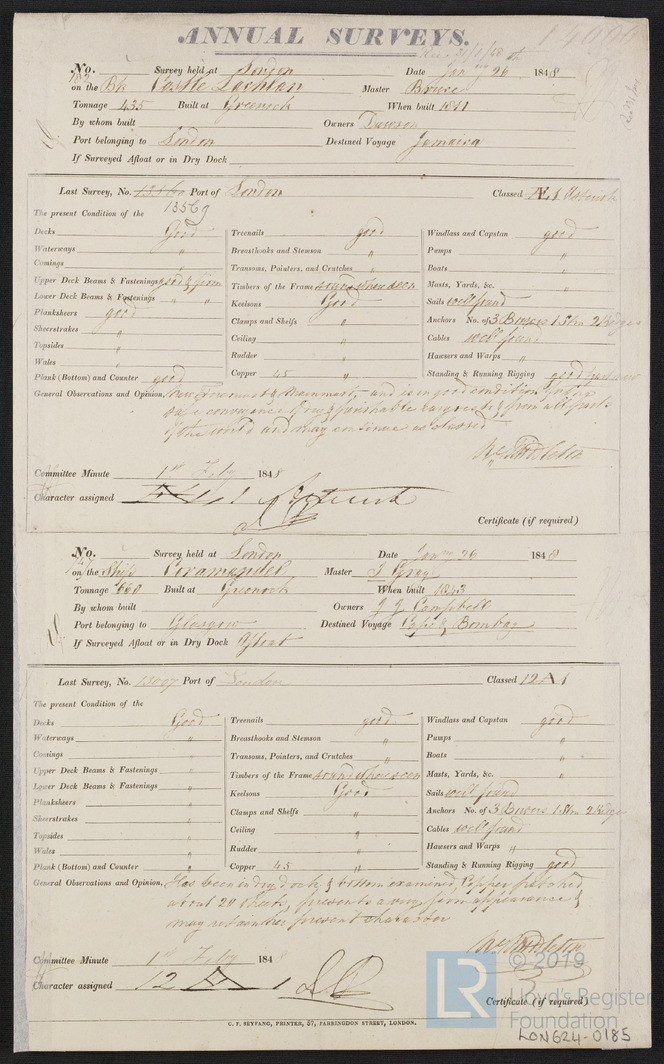 ANNUAL SURVEYS.
No. Survey held at London Date Jany 26 1848
on the Bk Castle Lachlan Master Bruce
Tonnage 435 Built at Greenock When built 1841
By whom built Owners Dawson
Port belonging to London Destined Voyage Jamaica
If Surveyed Afloat or in Dry Dock
Last Survey, No. 13560 Port of London Classed Æ 1 Asterisk
13569
The present Condition of the
Decks Good Treenails good Windlass and Capstan good
Waterways " Breasthooks and Stemson Pumps "
Comings Transoms, Pointers, and Crutches " Boats "
Upper Deck Beams & Fastenings good & firm Timbers of the Frame sound where seen Masts, Yards, &c. "
Lower Deck Beams & Fastenings " " Keelsons Good Sails well found
Planksheers good Clamps and Shelfs " Anchors No. of 3 Bowers 1 Strm 2 Kedges
Sheerstrakes " Ceiling " Cables well found
Topsides " Rudder " Hawsers and Warps "
Wales "
Plank (Bottom) and Counter good Copper 45 " Standing & Running Rigging good
General Observations and Opinion, New Foremast & Mainmast, and is in good condition for the
safe conveyance of dry & perishable cargoes to & from all parts
of the world and may continue as classed
Committee Minute 1st Feby 1848
Character assigned
Certificate (if required)
No. Survey held at London Date Jany 26 1848
on the Ship Coromandel Master J Gray
Tonnage 660 Built at Greenock When built 1843
By whom built Owners J J Campbell
Port belonging to Glasgow Destined Voyage Cape & Bombay
If Surveyed Afloat or in Dry Dock Afloat
Last Survey, No. 13007 Port of London Classed 12 A 1
The present Condition of the
Decks Good Treenails good Windlass and Capstan good
Waterways " Breasthooks and Stemson " Pumps "
Comings " Transoms, Pointers, and Crutches " Boats "
Upper Deck Beams & Fastenings " Timbers of the Frame sound where seen Masts, Yards, &c. "
Lower Deck Beams & Fastenings " Keelsons Good Sails well found
Planksheers " Clamps and Shelfs " Anchors No. of 3 Bowers 1 Strm 2 Kedges
Sheerstrakes " Ceiling " Cables well found
Topsides " Rudder " Hawsers and Warps "
Wales "
Plank (Bottom) and Counter " Copper 45 " Standing & Running Rigging good
General Observations and Opinion, Has been in dry dock & bottom examined, Copper
about 20 sheets, presents a very firm appearance &
may retain her present character
Committee Minute 1st Feby 1848
Character assigned 12 A 1
Certificate (if required).
© 2019
LR Lloyd's Register
Foundation
C. F. SEYFANG, PRINTER, 57, FARRINGDON STREET, LONDON.
LON624-0185